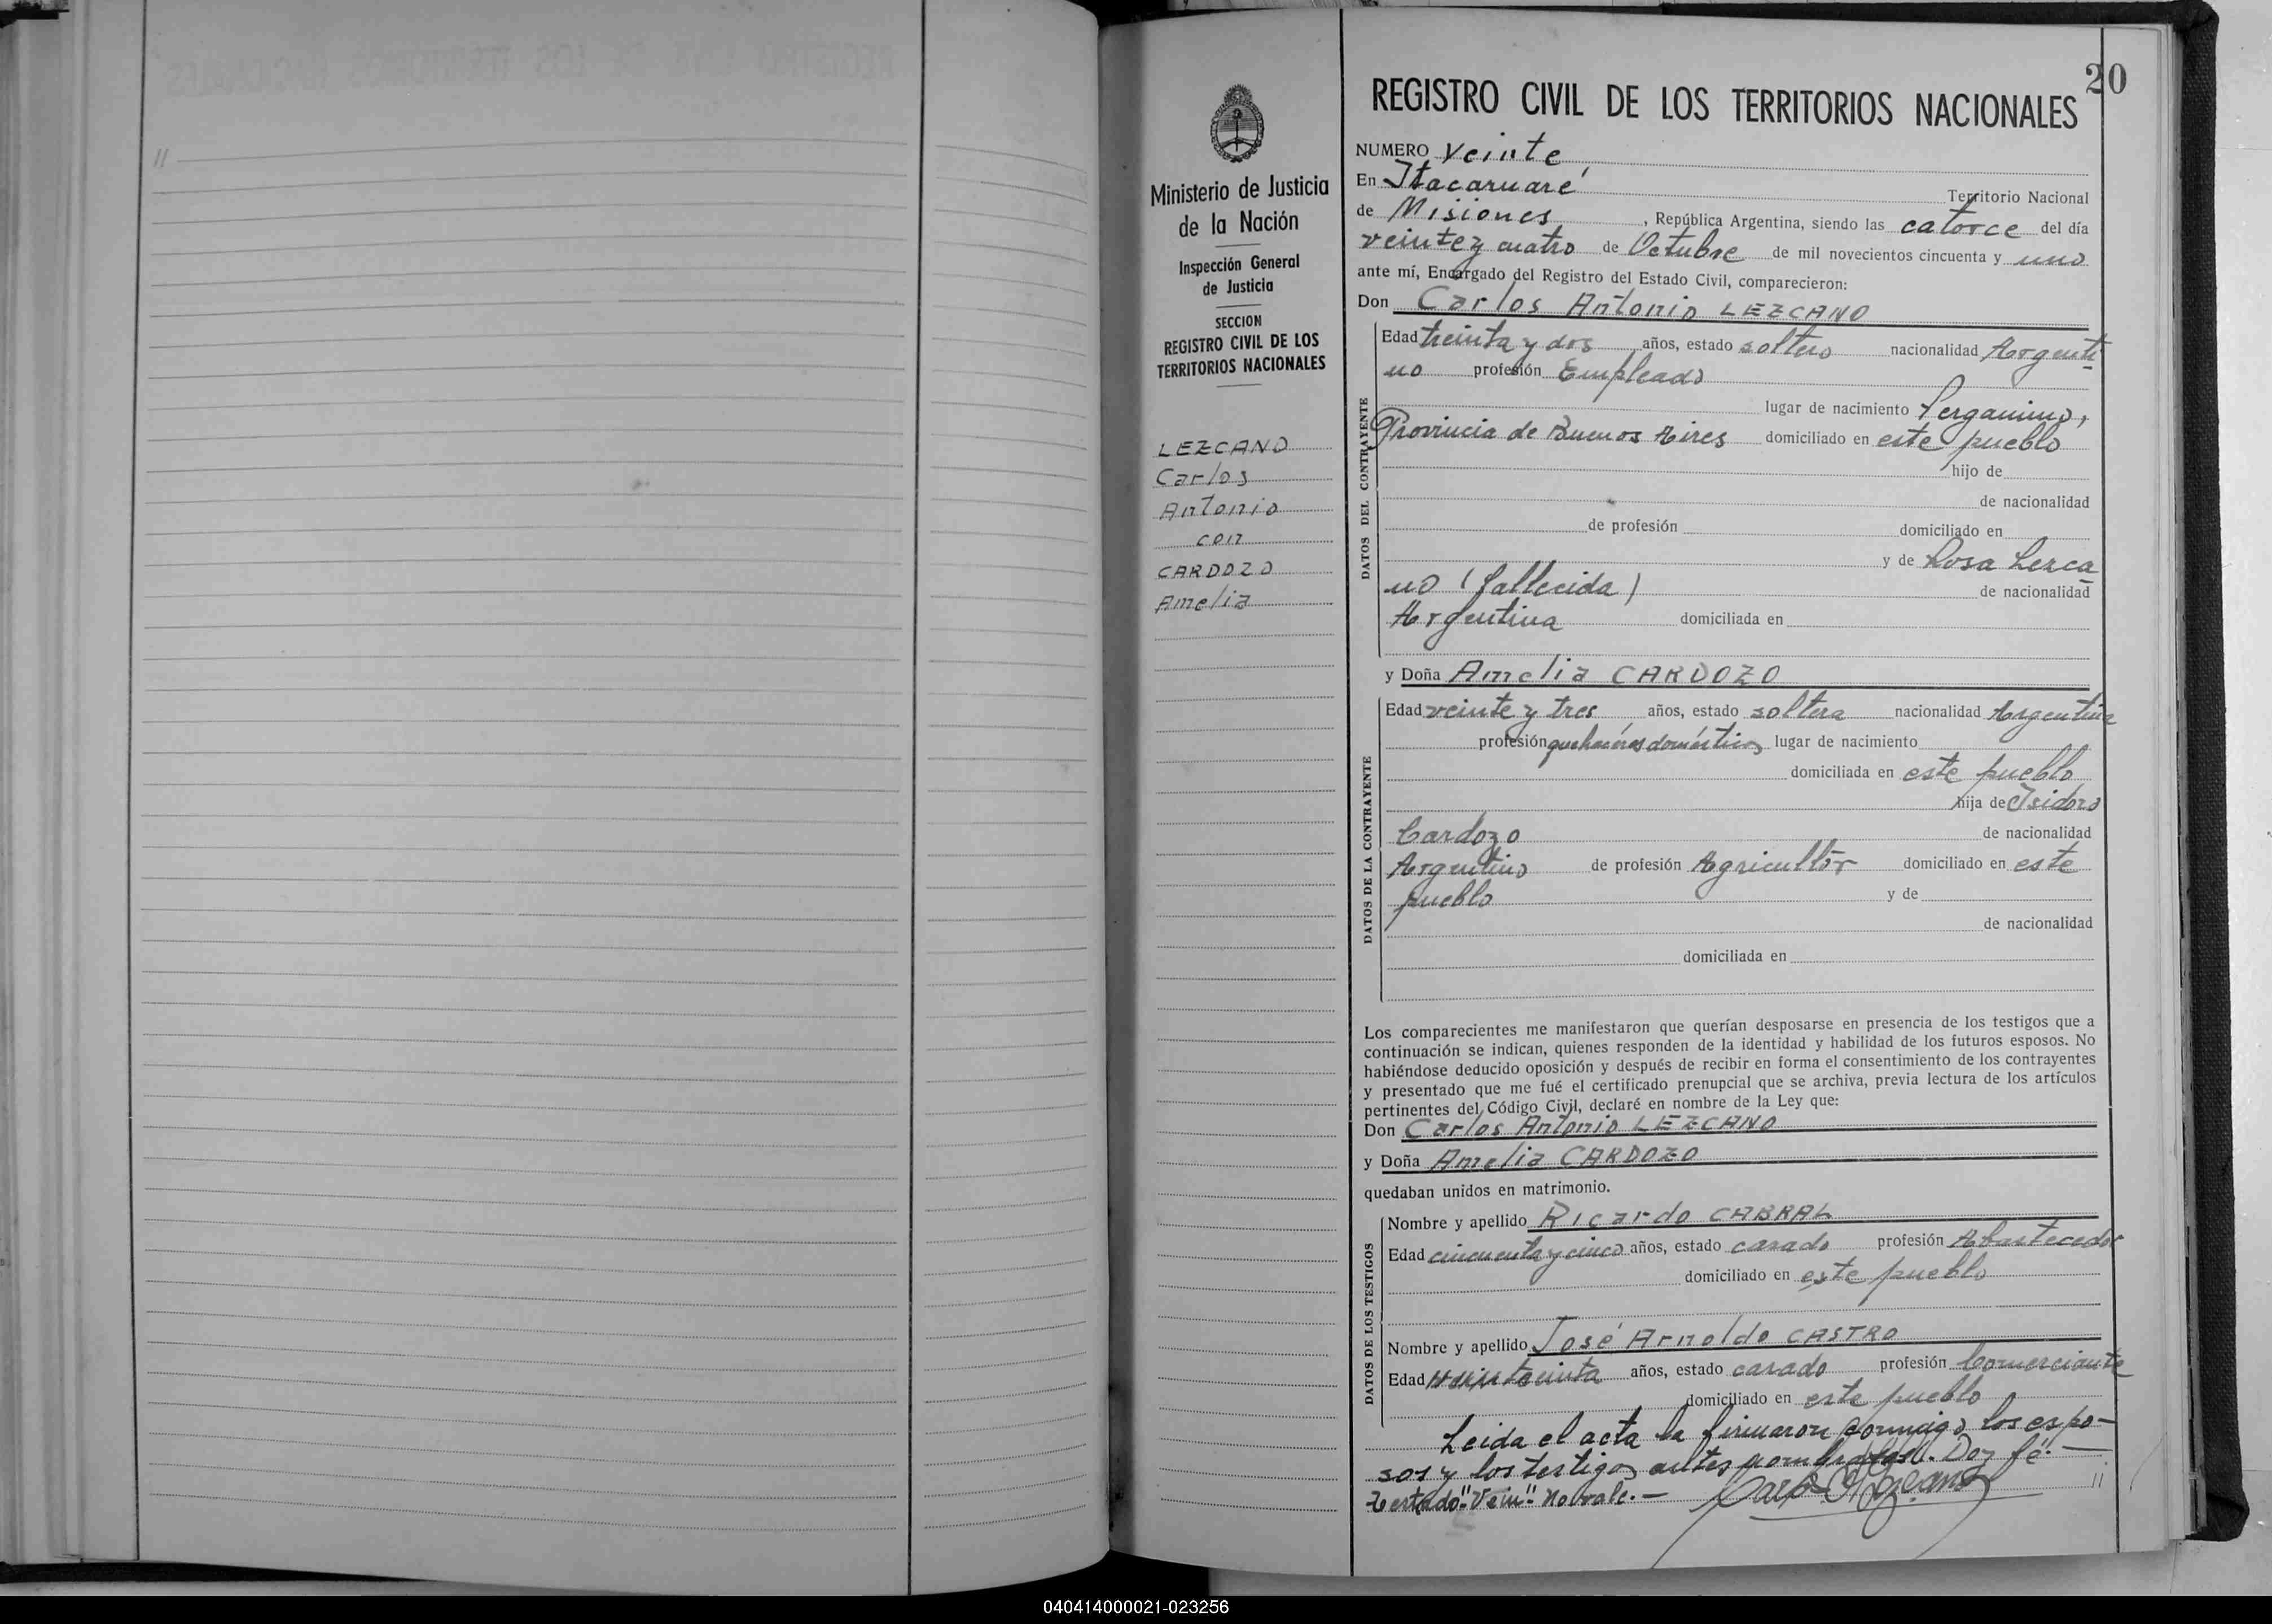 20
REGISTRO CIVIL DE LOS TERRITORIOS NACIONALES
Ministerio de Justicia
de la Nación
Inspección General
de Justicia
SECCION
REGISTRO CIVIL DE LOS
TERRITORIOS NACIONALES
LEZCANO
Carlos
Antonio
con
CARDOZO
Amelia
NUMERO Veinte
En Itacaruaré Territorio Nacional
de Misiones, República Argentina, siendo las catorce del día
veinte y cuatro de Octubre de mil novecientos cincuenta y uno
ante mí, Encargado del Registro del Estado Civil, comparecieron:
Don Carlos Antonio LEZCANO
DATOS DEL CONTRAYENTE
Edad treinta y dos años, estado soltero nacionalidad Argenti-
no profesión Empleado
lugar de nacimiento Pergamino,
Provincia de Buenos Aires domiciliado en este pueblo
hijo de
de nacionalidad
de profesión domiciliado en
y de Rosa Lezca-
no (fallecida) de nacionalidad
Argentina domiciliada en
y Doña Amelia CARDOZO
DATOS DE LA CONTRAYENTE
Edad veinte y tres años, estado soltera nacionalidad Argentina
profesión quehaceres domésticos lugar de nacimiento
domiciliada en este pueblo
hija de Isidoro
Cardozo de nacionalidad
Argentino de profesión Agricultor domiciliado en este
pueblo y de
de nacionalidad
domiciliada en
Los comparecientes me manifestaron que querían desposarse en presencia de los testigos que a
continuación se indican, quienes responden de la identidad y habilidad de los futuros esposos. No
habiéndose deducido oposición y después de recibir en forma el consentimiento de los contrayentes
y presentado que me fué el certificado prenupcial que se archiva, previa lectura de los artículos
pertinentes del Código Civil, declaré en nombre de la Ley que:
Don Carlos Antonio LEZCANO
y Doña Amelia CARDOZO
quedaban unidos en matrimonio.
DATOS DE LOS TESTIGOS
Nombre y apellido Ricardo CABRAL
Edad cincuenta y cinco años, estado casado profesión Abastecedor
domiciliado en este pueblo
Nombre y apellido José Arnoldo CASTRO
Edad treinta años, estado casado profesión Comerciante
domiciliado en este pueblo
Leida el acta la firmaron conmigo los espo-
sos y los testigos antes nombrados. Doy fé.-
Testado "Vein" No vale.-
040414000021-023256